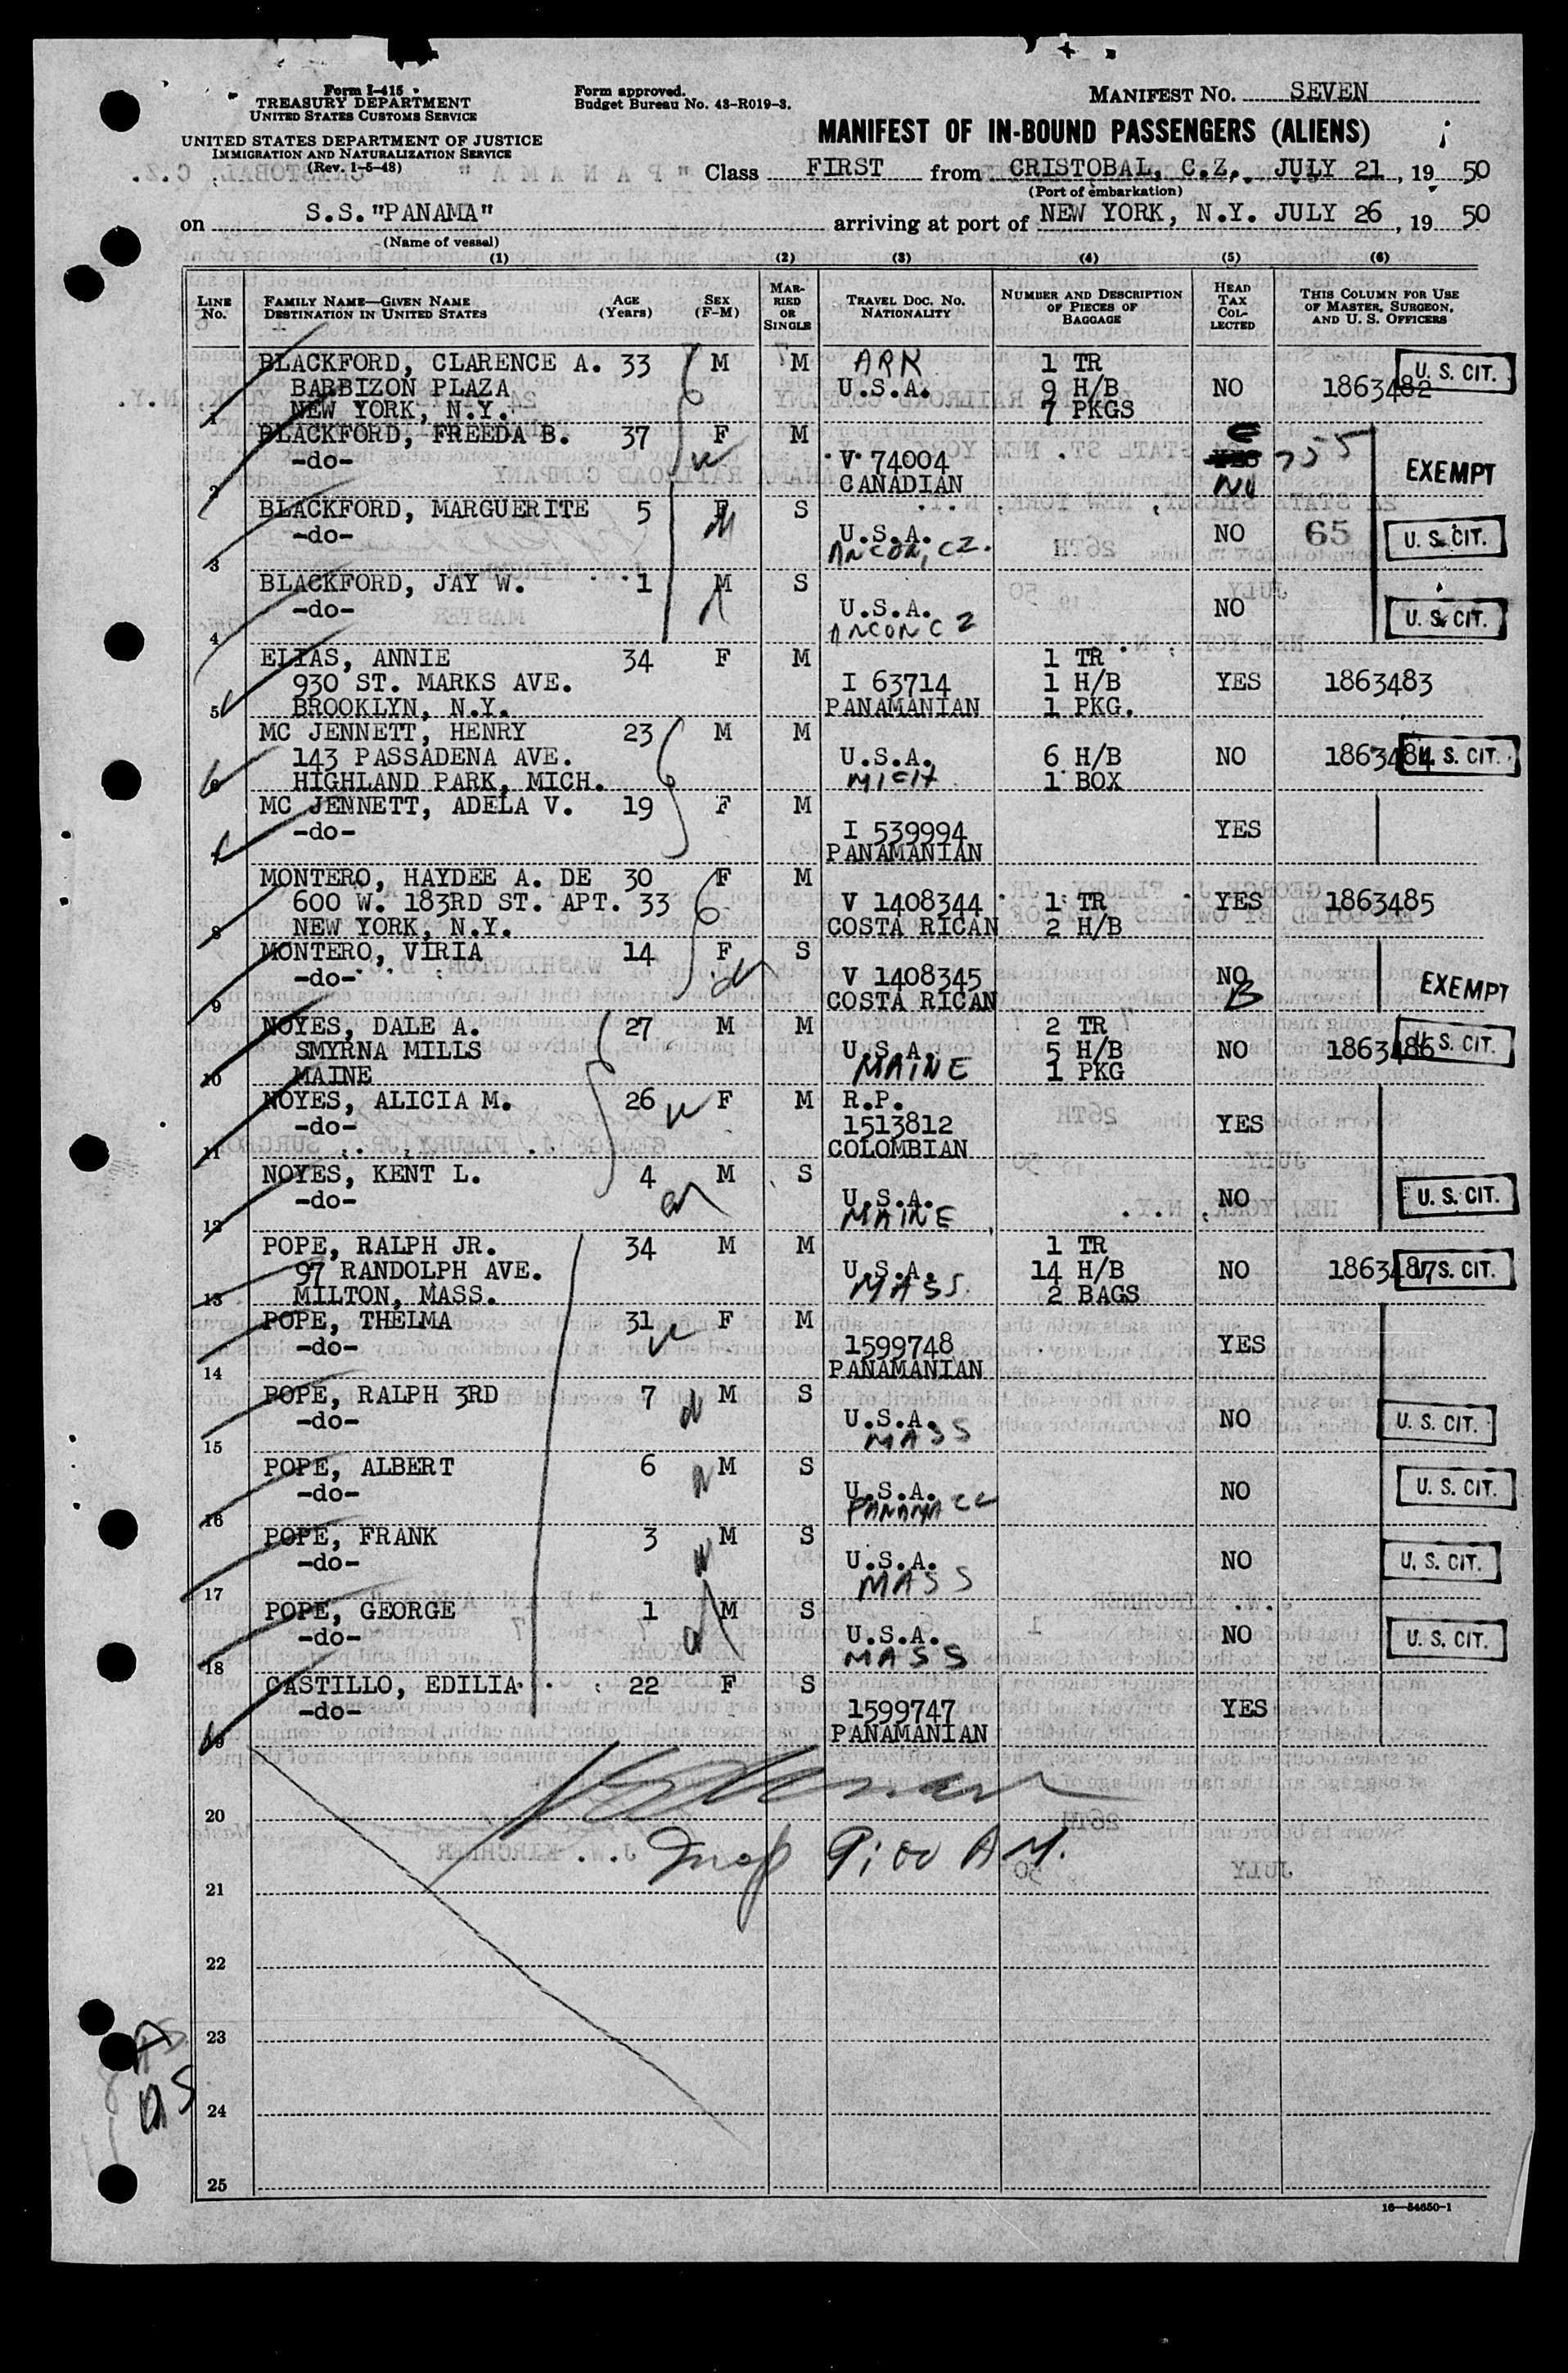 Form I-415
TREASURY DEPARTMENT
UNITED STATES CUSTOMS SERVICE
UNITED STATES DEPARTMENT OF JUSTICE
IMMIGRATION AND NATURALIZATION SERVICE
(Rev. 1-5-48)
Form approved.
Budget Bureau No. 43-R019-3.
MANIFEST NO. SEVEN
MANIFEST OF IN-BOUND PASSENGERS (ALIENS)
Class FIRST from CRISTOBAL, C.Z. JULY 21, 19 50
(Port of embarkation)
on S.S."PANAMA" arriving at port of NEW YORK, N.Y. JULY 26, 19 50
(Name of vessel)
(1) (2) (3) (4) (5) (6)
LINE NO. FAMILY NAME—GIVEN NAME DESTINATION IN UNITED STATES AGE (Years) SEX (F-M) MARRIED OR SINGLE TRAVEL DOC. NO. NATIONALITY NUMBER AND DESCRIPTION OF PIECES OF BAGGAGE HEAD TAX COLLECTED THIS COLUMN FOR USE OF MASTER, SURGEON, AND U. S. OFFICERS
BLACKFORD, CLARENCE A. 33 M M ARK 1 TR U. S. CIT.
BARBIZON PLAZA U.S.A. 9 H/B NO 1863482
1 NEW YORK, N.Y. 7 PKGS
BLACKFORD, FREEDA B. 37 F M
-do- V 74004 YES 755 EXEMPT
2 CANADIAN NO
BLACKFORD, MARGUERITE 5 F S
-do- U.S.A. NO 65 U. S. CIT.
3 ANCON, CZ.
BLACKFORD, JAY W. 1 M S
-do- U.S.A. NO U. S. CIT.
4 ANCON CZ
ELIAS, ANNIE 34 F M 1 TR
930 ST. MARKS AVE. I 63714 1 H/B YES 1863483
5 BROOKLYN, N.Y. PANAMANIAN 1 PKG.
MC JENNETT, HENRY 23 M M
143 PASSADENA AVE. U.S.A. 6 H/B NO 1863484 U. S. CIT.
6 HIGHLAND PARK, MICH. MICH 1 BOX
MC JENNETT, ADELA V. 19 F M
-do- I 539994 YES
7 PANAMANIAN
MONTERO, HAYDEE A. DE 30 F M
600 W. 183RD ST. APT. 33 V 1408344 1 TR YES 1863485
8 NEW YORK, N.Y. COSTA RICAN 2 H/B
MONTERO, VIRIA 14 F S
-do- V 1408345 NO EXEMPT
9 COSTA RICAN
NOYES, DALE A. 27 M M 2 TR
SMYRNA MILLS U.S.A. 5 H/B NO 1863486 U. S. CIT.
10 MAINE MAINE 1 PKG
NOYES, ALICIA M. 26 F M R.P.
-do- 1513812 YES
11 COLOMBIAN
NOYES, KENT L. 4 M S
-do- U.S.A. NO U. S. CIT.
12 MAINE
POPE, RALPH JR. 34 M M 1 TR
97 RANDOLPH AVE. U.S.A. 14 H/B NO 1863487 U. S. CIT.
13 MILTON, MASS. MASS. 2 BAGS
POPE, THELMA 31 F M
-do- 1599748 YES
14 PANAMANIAN
POPE, RALPH 3RD 7 M S
-do- U.S.A. NO U. S. CIT.
15 MASS
POPE, ALBERT 6 M S
-do- U.S.A. NO U. S. CIT.
16 PANAMA CZ
POPE, FRANK 3 M S
-do- U.S.A. NO U. S. CIT.
17 MASS
POPE, GEORGE 1 M S
-do- U.S.A. NO U. S. CIT.
18 MASS
CASTILLO, EDILIA 22 F S
-do- 1599747 YES
19 PANAMANIAN
20
Insp 9:00 AM.
21
22
23
24
25
16—54650-1